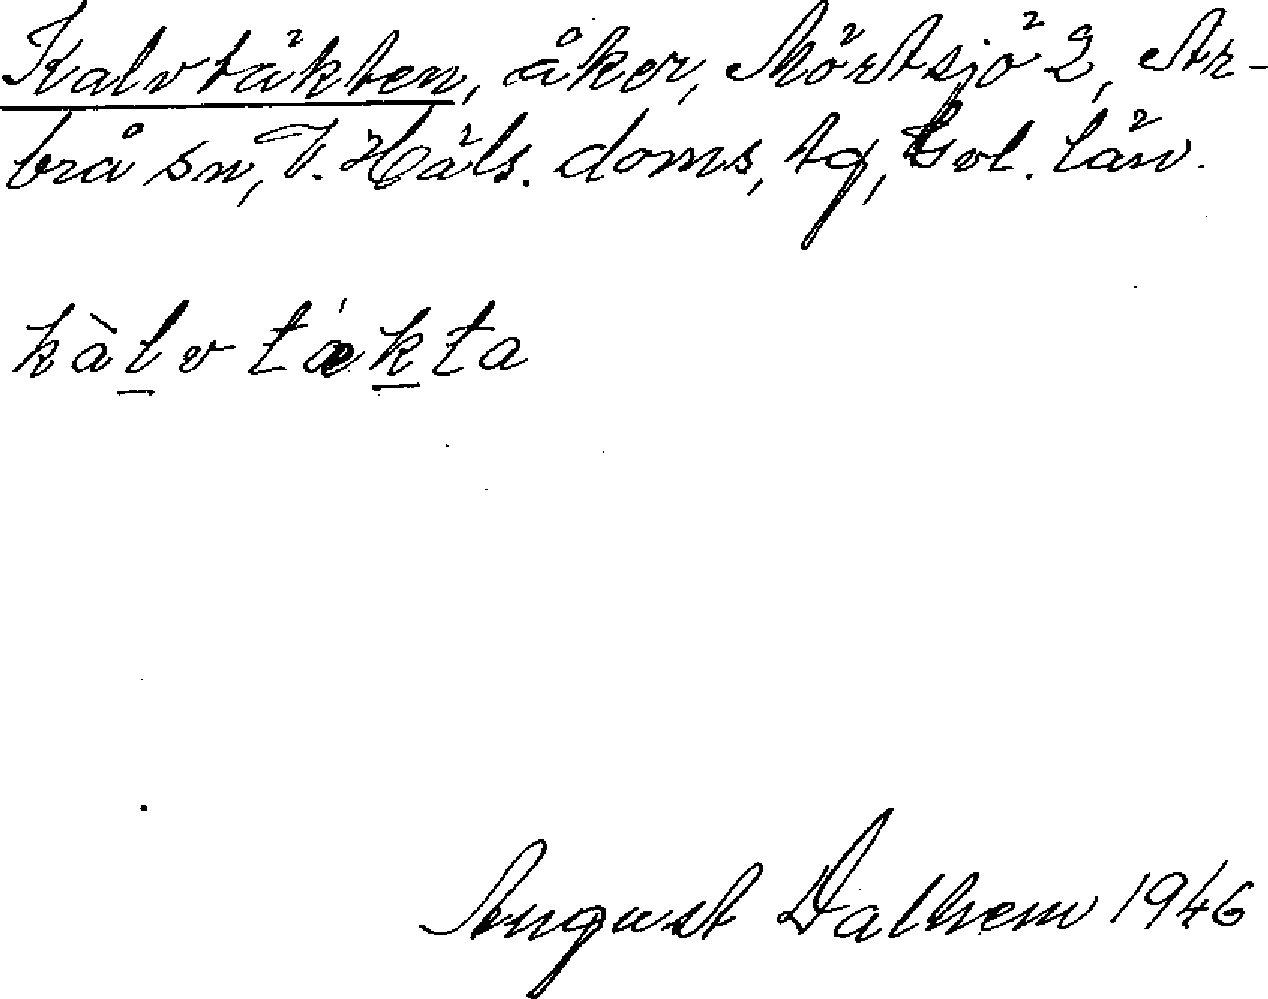 Kalvtäkten, åker, Mörtsjö 2, Ar-
brå sn, V. Häls. doms, tg, Gvl. län.
kàlvtǽkta
August Dalhem 1946